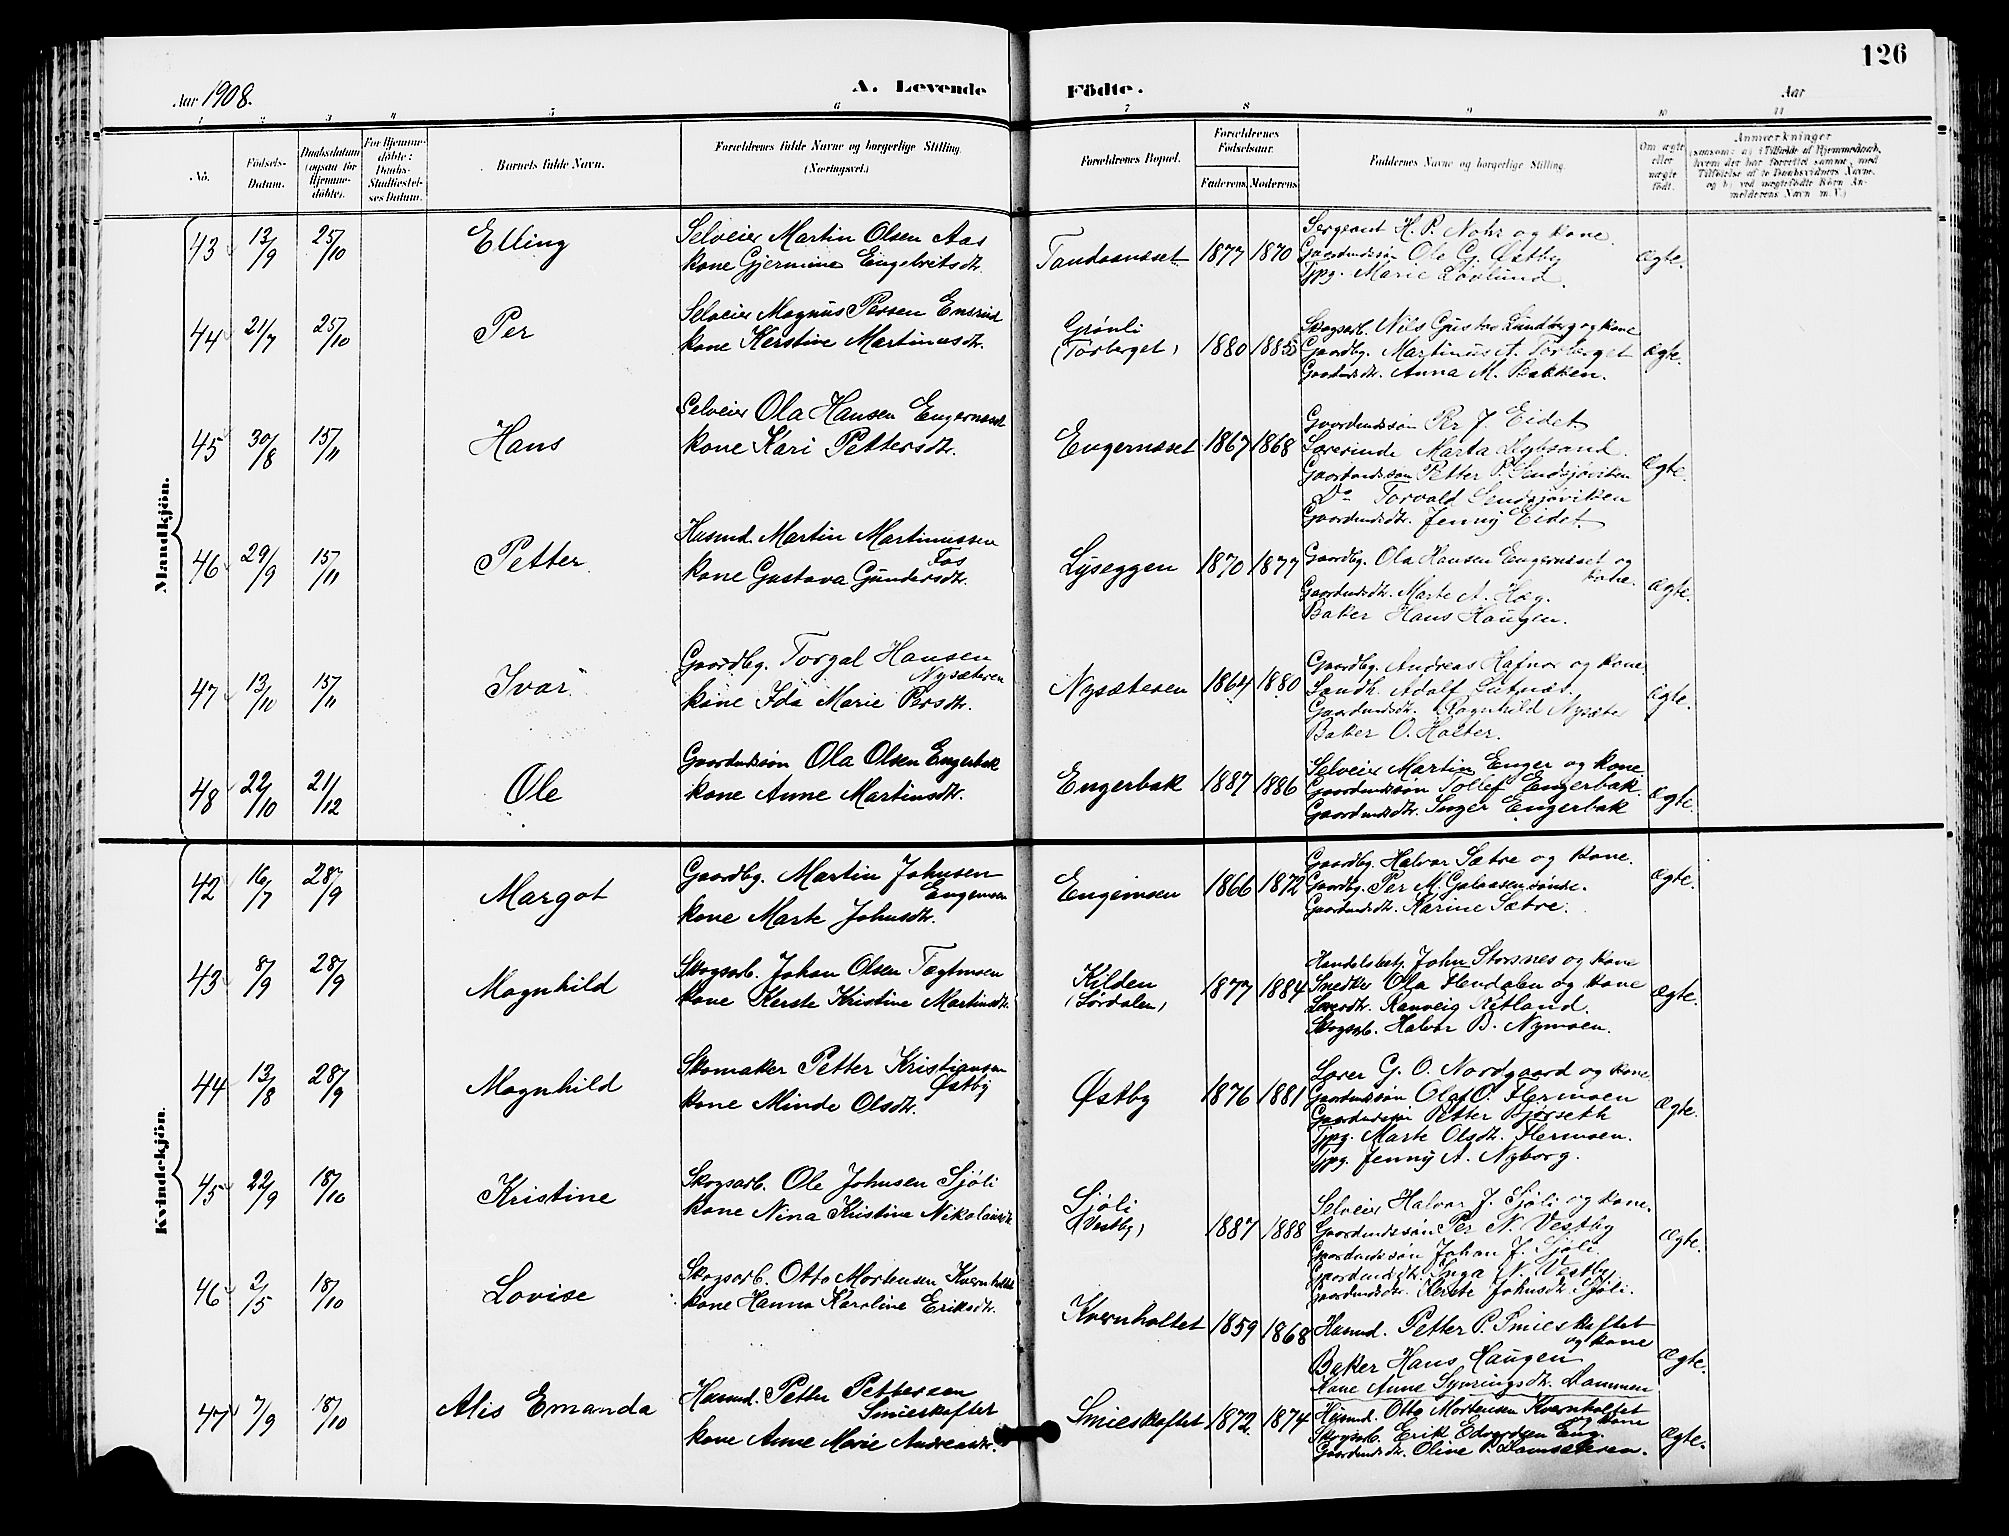 126
Aar 1908.
A. Levende Födte.
Aar
1 2 3 4 5 6 7 8 9 10 11
No.
Födsels-Datum.
Daabsdatum (ogsaa for Hjemme-döbte).
For Hjemme-döbte: Daabs-Stadfæstel-ses Datum.
Barnets fulde Navn.
Forældrenes fulde Navne og borgerlige Stilling. (Næringsvei.)
Forældrenes Bopæl.
Forældrenes Födselsaar.
Faderens. Moderens.
Faddernes Navne og borgerlige Stilling.
Om ægte eller uægte födt.
Anmærkninger
Mandkjön.
43 13/9 25/10 Elling
Selveier Martin Olsen Aas
kone Gjermine Engebritsdtr.
Tandaanæset 1877 1870
Sergeant H. P. Nohr og kone.
Gaardmdssøn Ole G. Østby
Tjpg. Marie Lövlund.
ægte.
44 21/7 25/10 Per
Selveier Magnus Persen Ensrud
kone Kerstine Martinusdtr.
Grönli
(Torberget) 1880 1885
Skogsarb. Nils Gustav Lundberg og kone
Gaardbg. Martinus A. Torberget
Gaardmdsdtr. Anna M. Bakken.
ægte.
45 30/8 15/11 Hans
Selveier Ola Hansen Engernæset
kone Kari Pettersdtr.
Engernæset 1867 1868
Gaardmdssøn Per J. Eidet
Lærerinde Marta
Gaardmdssøn Petter P. Sendsjøvikken
Do Torvald Sendsjøvikken
Gaardmdsdtr. Jenny Eidet.
Ægte.
46 29/9 15/11 Petter.
Husmd. Martin Martinussen
Fos
kone Gustava Gundersdtr.
Lyseggen 1870 1877
Gaardbg. Ola Hansen Engernæset og
kone.
Gaardmdsdtr. Marte A. Hæg.
Baker Hans Haugen.
Ægte.
47 13/10 15/11 Ivar
Gaardbg. Torgal Hansen
Nysæteren
kone Ida Marie Persdtr.
Nysæteren 1864 1880
Gaardbg. Andreas Hafnor og kone.
Landh. Adolf Lutnæs.
Gaardmdsdtr. Ragnhild Nysæter
Baker O. Halter.
Ægte.
48 22/10 21/12 Ole
Gaardmdssøn Ola Olsen Engerbak
kone Anne Martinsdtr.
Engerbak 1887 1886
Selveier Martin Enger og kone.
Gaardmdssøn Tollef Engerbak.
Gaardmdsdtr. Inger Engerbak
Ægte.
Kvindekjön.
42 16/7 28/9 Margot
Gaardbg. Martin Johnsen
Engemoen
kone Marte Johnsdtr.
Engemoen 1866 1872
Gaardbg. Halvor Sætre og kone.
Gaardbg. Per M. Galaasen
Gaardmdsdtr. Karine Sætre.
Ægte.
43 8/9 28/9 Magnhild
Skogsarb. Johan Olsen Tægtmoen
kone Kerste Kristine Martinsdtr.
Kilden
(Sørdalen) 1877 1884
Handelsbstj. John Storsnes og kone
Snedker Ola Flendalen og kone
Lærerdtr. Ranveig Retland.
Skogsarb. Halvor B. Nymoen.
Ægte.
44 13/8 28/9 Magnhild
Skomaker Petter Kristiansen
Østby
kone Minda Olsdtr.
Østby 1876 1881
Lærer G. O. Nordgaard og kone
Gaardmdssøn Olaf O. Flermoen
Gaardmdssøn Petter Bjørseth
Tjpg. Marte Olsdtr. Flermoen.
Tjpg. Jenny A. Nyborg.
Ægte.
45 22/9 18/10 Kristine
Skogsarb. Ole Johnsen Sjøli
kone Nina Kristine Nikolaisdtr.
Sjøli
(Vestby) 1887 1888
Selveier Halvor J. Sjøli og kone.
Gaardmdssøn Per N. Vestby
Gaardmdssøn Johan J. Sjøli.
Gaardmdsdtr. Inga N. Vestby
Gaardmdsdtr. Kerste Johnsdtr. Sjöli.
Ægte.
46 2/5 18/10 Lovise
Skogsarb. Otto Mortensen Kvernholtet
kone Hanna Karoline Eriksdtr.
Kvernholtet 1859 1868
Husmd. Petter P. Smieskaftet
og kone
Baker Hans Haugen
Kone Anne Syvringsdtr. Dammen
Ægte.
47 7/9 18/10 Alis Emanda
Husmd. Petter Pettersen
Smieskaftet
kone Anne Marie Andreasdtr.
Smieskaftet 1872 1874
Husmd. Otto Mortensen Kvernholtet
og kone
Skogsarb. Erik Edvardsen Eng.
Gaardmdsdtr. Oline P. Damsæteren.
Ægte.